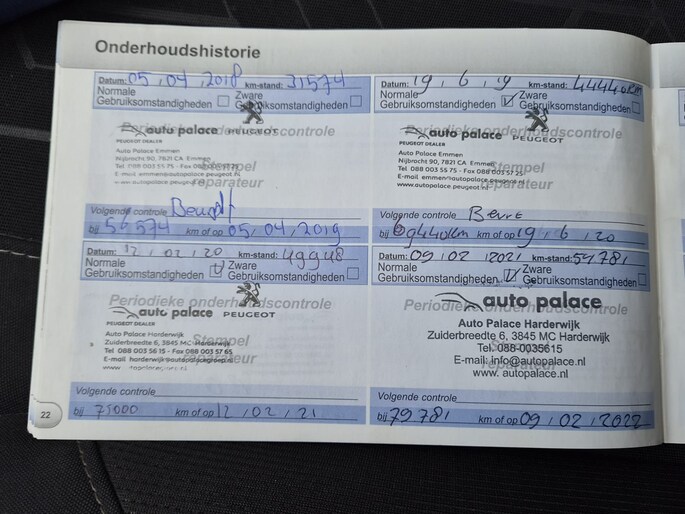 Onderhoudshistorie
Datum: 05 , 04 , 2018 km-stand: 31574
Normale Gebruiksomstandigheden Zware Gebruiksomstandigheden
Periodieke onderhoudscontrole
auto palace PEUGEOT
PEUGEOT DEALER
Auto Palace Emmen
Nijbracht 90, 7821 CA Emmen
Tel 088 003 55 75 - Fax
Stempel reparateur
E-mail emmen@autopalace.peugeot.nl
www.autopalace.peugeot.nl
Volgende controle
bij 56574 km of op 05 , 04 , 2019
Datum: 19 , 6 , 19 km-stand: 44440km
Normale Gebruiksomstandigheden Zware Gebruiksomstandigheden
Periodieke onderhoudscontrole
auto palace PEUGEOT
PEUGEOT DEALER
Auto Palace Emmen
Nijbracht 90, 7821 CA Emmen
Tel. 088 003 55 75 - Fax
Stempel reparateur
E-mail emmen@autopalace.peugeot.nl
www.autopalace.peugeot.nl
Volgende controle Beurt
bij 69440km km of op 19 , 6 , 20
Datum: 12 , 02 , 20 km-stand: 49948
Normale Gebruiksomstandigheden Zware Gebruiksomstandigheden
Periodieke onderhoudscontrole
auto palace PEUGEOT
PEUGEOT DEALER
Auto Palace Harderwijk
Zuiderbreedte 6, 3845 MC Harderwijk
Tel 088 003 56 15 - Fax 088 003 57 65
Stempel reparateur
Volgende controle
bij 75000 km of op 12 , 02 , 21
Datum: 09 , 02 , 2021 km-stand: 54781
Normale Gebruiksomstandigheden Zware Gebruiksomstandigheden
Periodieke onderhoudscontrole
auto palace
Auto Palace Harderwijk
Zuiderbreedte 6, 3845 MC Harderwijk
Tel. 088-0035615
Stempel reparateur
E-mail: info@autopalace.nl
www. autopalace.nl
Volgende controle
bij 79781 km of op 09 , 02 , 2022
22